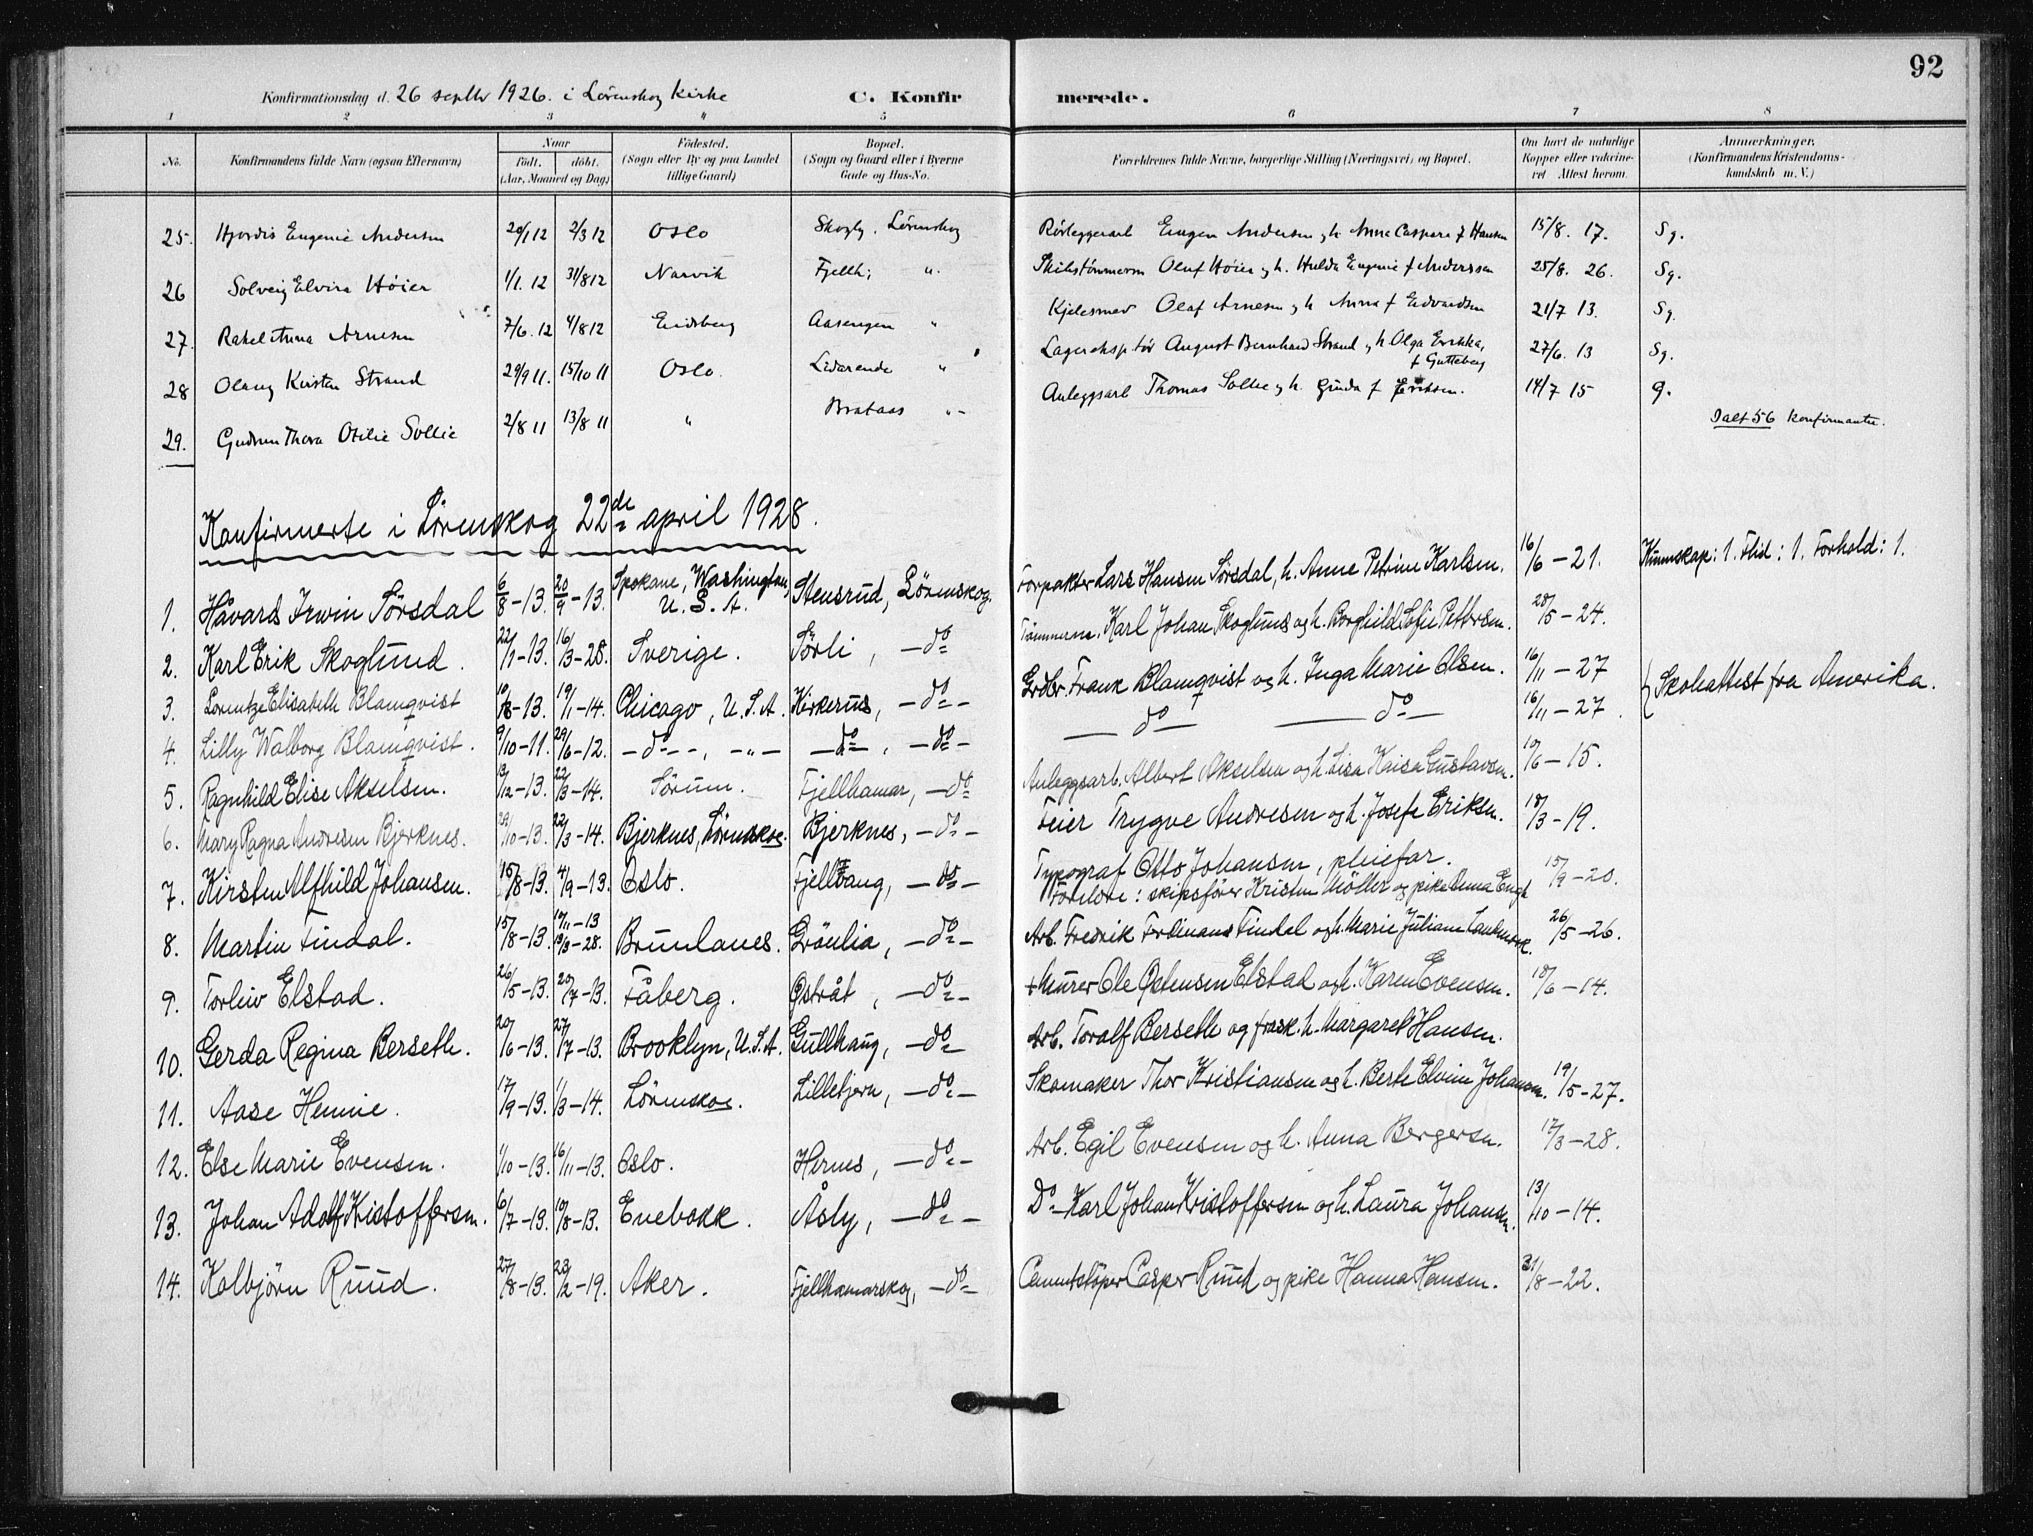 92
Konfirmationsdag d. 26 septbr 1926. i Lørenskog kirke C. Konfirmerede.
1 2 3 4 5 6 7 8
No. Konfirmandens fulde Navn (ogsaa Efternavn) Naar født. døbt. (Aar, Maaned og Dag) Fødested. (Sogn eller By og paa Landet tillige Gaard) Bopæl. (Sogn og Gaard eller i Byerne Gade og Hus-No. Forældrenes fulde Navne, borgerlige Stilling (Næringsvei) og Bopæl. Om havt de naturlige Kopper eller vakcineret Attest herom. Anmærkninger. (Konfirmandens Kristendomskundskab m. V.)
25. Hjordis Eugenie Andersen 20/1 12 2/3 12 Oslo Skogly, Lørenskog Rørleggerarb Eugen Andersen og h Anna Caspara f Hansen 15/8. 17. Sg.
26 Solveig Elvira Høier 1/1. 12 31/8 12 Narvik Fjellh; " Olaf Høier og h. Hulda Eugenie f Anderssen 25/8. 26. Sg.
27. Rakel Anna Arnesen 7/6. 12 4/8 12 Eidsberg Aasengen " Kjelesmed Olaf Arnesen og h Anna f Edvardsen 21/7 13. Sg.
28 Olaug Kirsten Strand 29/9 11. 15/10 11 Oslo. " Lagerekspeditør August Bernhard Strand og h Olga Erikka, f Gutteberg 27/6. 13 Sg.
29. Gudrun Thora Otilie Sollie 2/8 11 13/8 11 " Brataas " Anleggsarb Thomas Sollie og h. Gunda f Eriksen. 14/7 15 g.
Ialt 56 konfirmanter.
Konfirmerte i Lørenskog 22de april 1928.
1. Håvard Irwin Sørsdal 6/8-13. 20/9-13. Spokane, Washington, U.S.A. Stensrud, Lørenskog. Forpakter Lars Hansen Sørsdal, h. Anne Petrine Karlsen. 16/6-21. Kunnskap: 1. Flid: 1. Forhold: 1.
2. Karl Erik Skoglund. 22/1-13. 16/3-28. Sverige. Sørli, -do- Tømmerm. Karl Johan Skoglund og h. Borghild Sofie Pettersen. 28/5-24.
3. Lorentze Elisabeth Blamqvist 10/8-13. 19/1-14. Chicago, U.S.A. Kirkerud, -do- Grdbr. Frank Blamqvist og h. Inga Marie Olsen. 16/11-27 Skoleattest fra Amerika.
4. Lilly Walborg Blamqvist. 9/10-11. 29/6-12. -do-, -"- -do-, -do- -do- -do- 16/11-27.
5. Ragnhild Elise Akselsen. 13/12-13. 22/3-14. Sørum. Fjellhamar, -do- Anleggsarb. Albert Akselsen og h. Lisa Kaisa Gustavsen. 10/6-15.
6. Mary Ragna Andresen Bjerknes. 29/10-13. 22/3-14. Bjerknes, Lørenskog. Bjerknes, -do- Feier Trygve Andresen og h. Josefe Eriksen. 18/3-19.
7. Kirsten Alfhild Johansen. 15/8-13. 4/9-13. Oslo. Fjellvang, -do- Typograf Otto Johansen, pleiefar.
Foreldre: skipsfører Kristen Møller og pike Anna Engh 15/9-20.
8. Martin Tindal. 15/8-13. 10/11-13 18/3-28. Brunlanes. Grønlia, -do- Arb. Fredrik Ferdinand Tindal og h. Marie Juliane 26/5-26.
9. Torleiv Elstad. 26/5-13. 20/7-13. Fåberg. Østråt, -do- +Murer Ole Østensen Elstad og h. Karen Evensen. 18/6-14.
10. Gerda Regina Berseth. 20/6-13. 27/7-13. Brooklyn, U.S.A. Gullhaug, -do- Arb. Toralf Berseth og frask. h. Margaret Hansen.
11. Aase Hennie. 17/9-13. 1/3-14. Lørenskog. Lillebjern, -do- Skomaker Thor Kristiansen og h. Berte Elvine Johansen. 19/5-27.
12. Else Marie Evensen. 1/10-13. 16/11-13. Oslo. Hernes, -do- Arb. Egil Evensen og h. Anna Bergersen. 17/3-28.
13. Johan Adolf Kristoffersen. 6/7-13. 10/8-13. Enebakk. Åsly, -do- Do- Karl Johan Kristoffersen og h. Laura Johansen. 13/10-14.
14. Kolbjørn Ruud. 27/8-13. 23/2-19. Aker. Fjellhamarskog, -do- Cementstøper Casper Ruud og pike Hanna Hansen. 31/8-22.